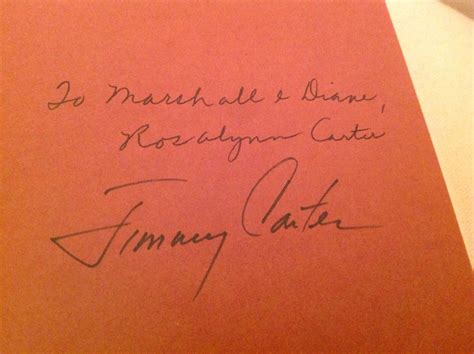 To Marshall & Diane,
Rosalynn Carter
Jimmy Carter